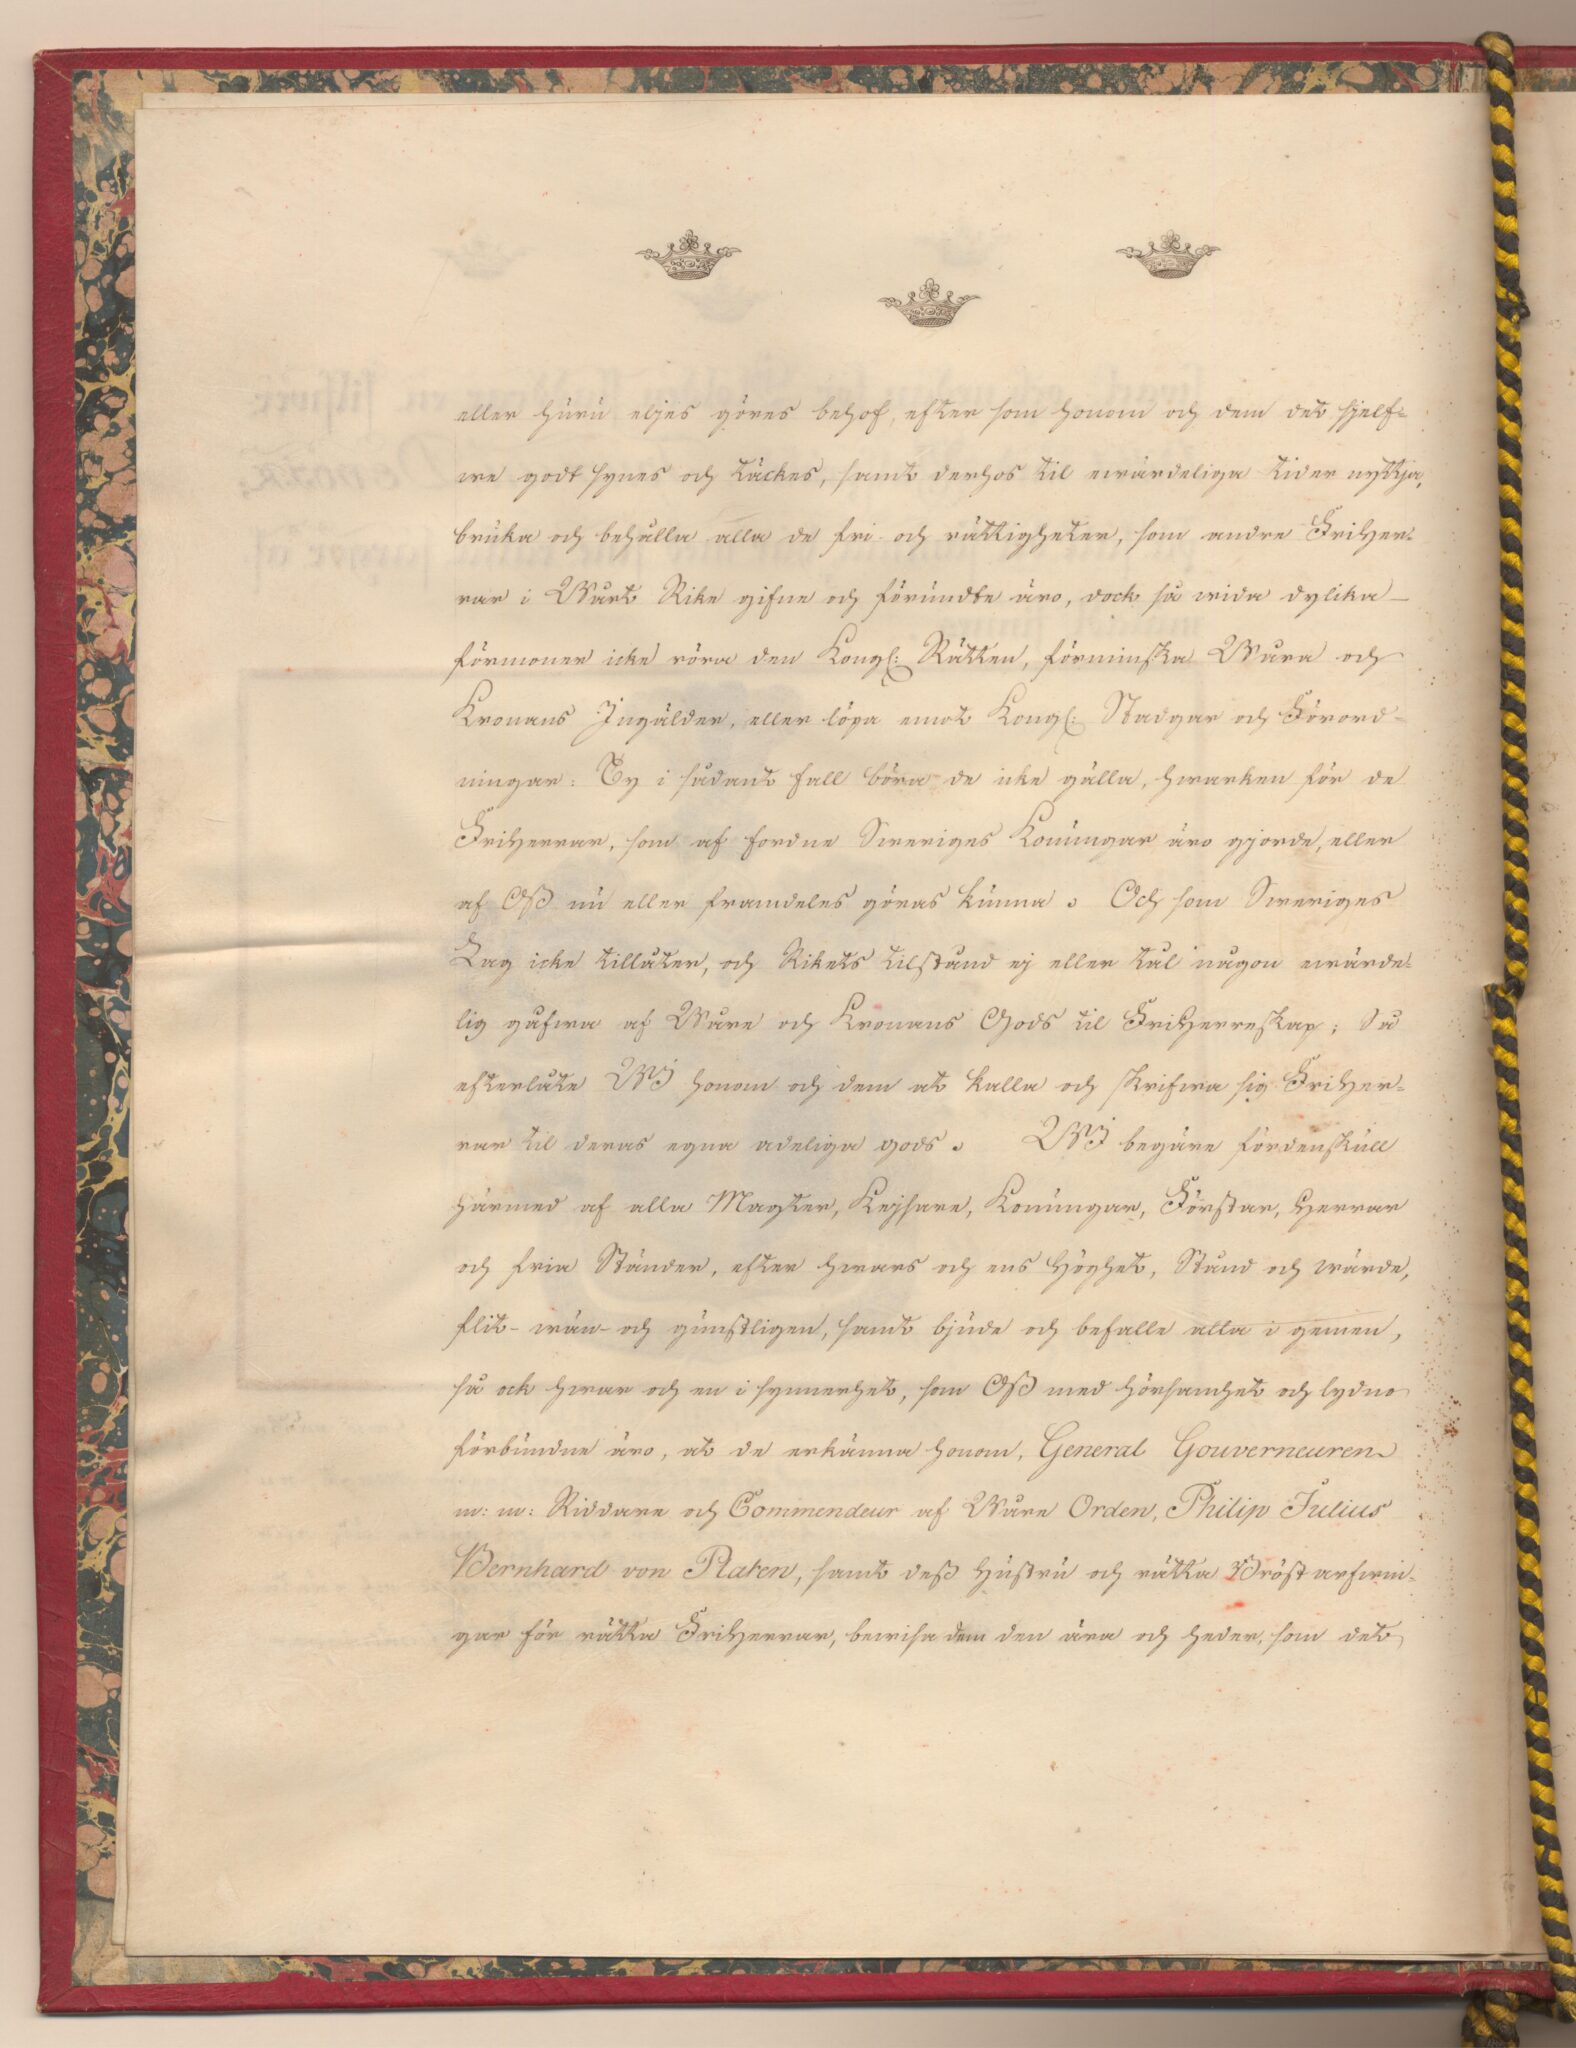 eller huru eljes göres behof, efter som honom och dem det sjelf=
we godt synes och täckes, samt derhos til ewärdeliga tider nyttja,
bruka och behålla alla de fri- och rättigheter, som andre FriHer=
rar i Wårt Rike gifne och förundte äro, dock så wida dylika
förmoner icke röra den Kongl: Rätten, förminska Wåra och
Kronans Ingälder, eller löpa emot Kongl: Stadgar och Förord=
ningar: Ty i sådant fall böra de icke gälla, hwarken för de
FriHerrar, som af fordne Sweriges Konungar äro gjorde, eller
af Oß nu eller framdeles göras kunna. Och som Sweriges
Lag icke tillåter, och Rikets tilstånd ej eller tål någon ewärde=
lig gåfwa af Wåre och Kronans Gods til FriHerreskap; Så
efterlåte WJ honom och dem at kalla och skrifwa sig FriHer=
rar til deras egna adeliga gods. WJ begäre fördenskull
härmed af alla Magter, Kejsare, Konungar, Förstar, Herrar
och fria Ständer, efter hwars och ens Höghet, Stånd och wärde,
flit- wän- och gunstligen, samt bjude och befalle alla i gemen,
så ock hwar och en i synnerhet, som Oß med hörsamhet och lydno
förbundne äro, at de erkänna honom, General Gouverneuren
m: m: Riddare och Commendeur af Wåre Orden, Philip Julius
Bernhard von Platen, samt deß Hustru och rätta Bröstarfwin=
gar för rätta FriHerrar, bewisa dem den ära och heder, som det